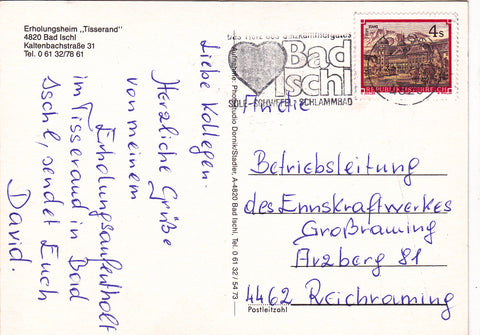 Erholungsheim „Tisserand"
4820 Bad Ischl
Kaltenbachstraße 31
Tel. 0 61 32/78 61
Liebe Kollegen.
Herzliche Grüße
von meinem
Erholungsaufenthalt
im Tisserand in Bad
Ischl, sendet Euch
David.
Das Herz des Salzkammergutes
Bad
Ischl
SOLE-SCHWEFEL-SCHLAMMBAD
4 S
REPUBLIK ÖSTERREICH
An die
Betriebsleitung
des Ennskraftwerkes
Großraming
Arzberg 81
4462 Reichraming
Postleitzahl
Photostudio Dornik/Stadler, A-4820 Bad Ischl, Tel. 0 61 32 / 54 73